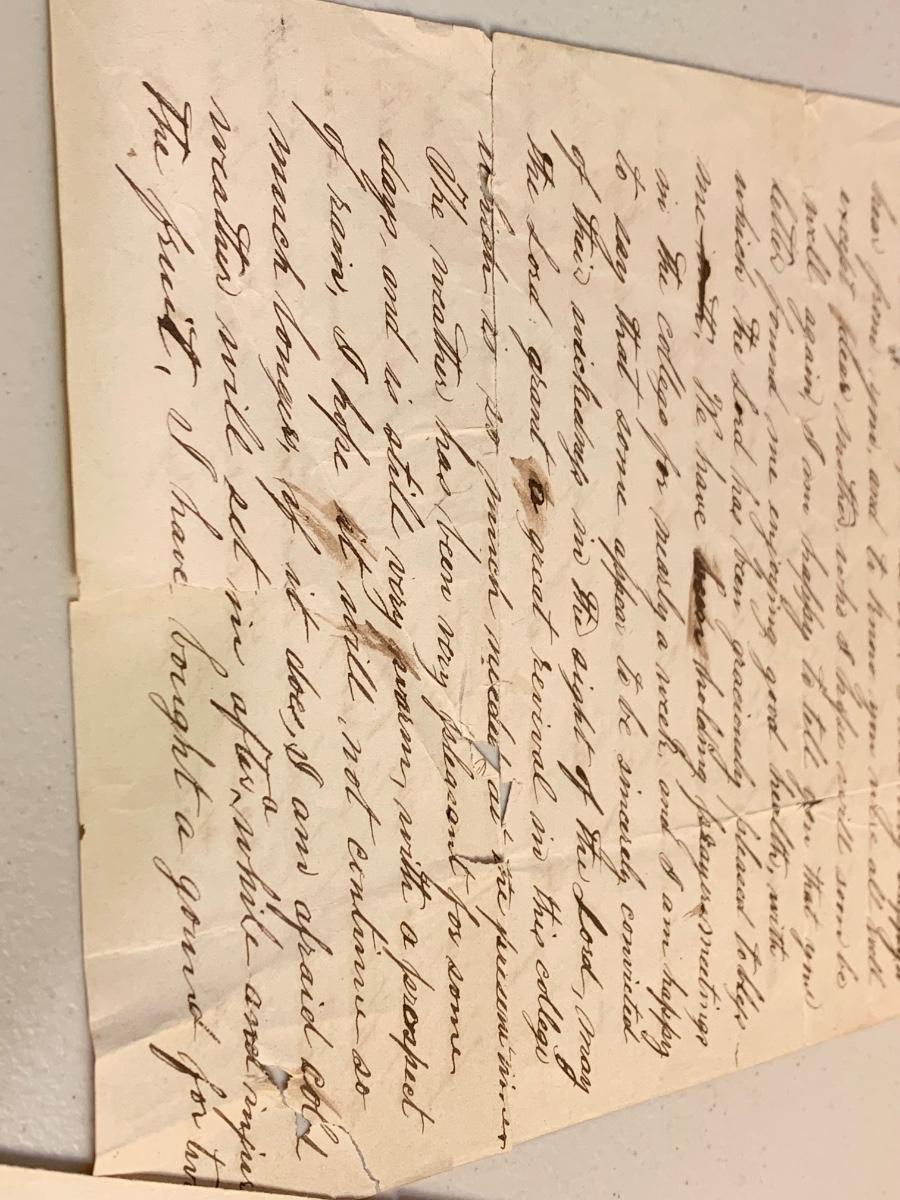 hear from you, and to know you were all well
except father mother, who I hope will soon be
well again, I am happy to tell you that your
letter found me enjoying good health, with
which the Lord has been graciously pleased to bless
me We have been holding prayer meetings
in the college for nearly a week, and I am happy
to say that some appear to be sincerely convicted
of their wickedness in the sight of the Lord, may
the Lord grant a great revival in this college
which is so much needed at the present time
The weather has been very pleasent for some
days, and is still very warm, with a prospect
of rain, I hope it will not continue so
much longer, if it does, I am afraid cold
weather will set in after a while and injure
the fruit, I have bought a gourd for